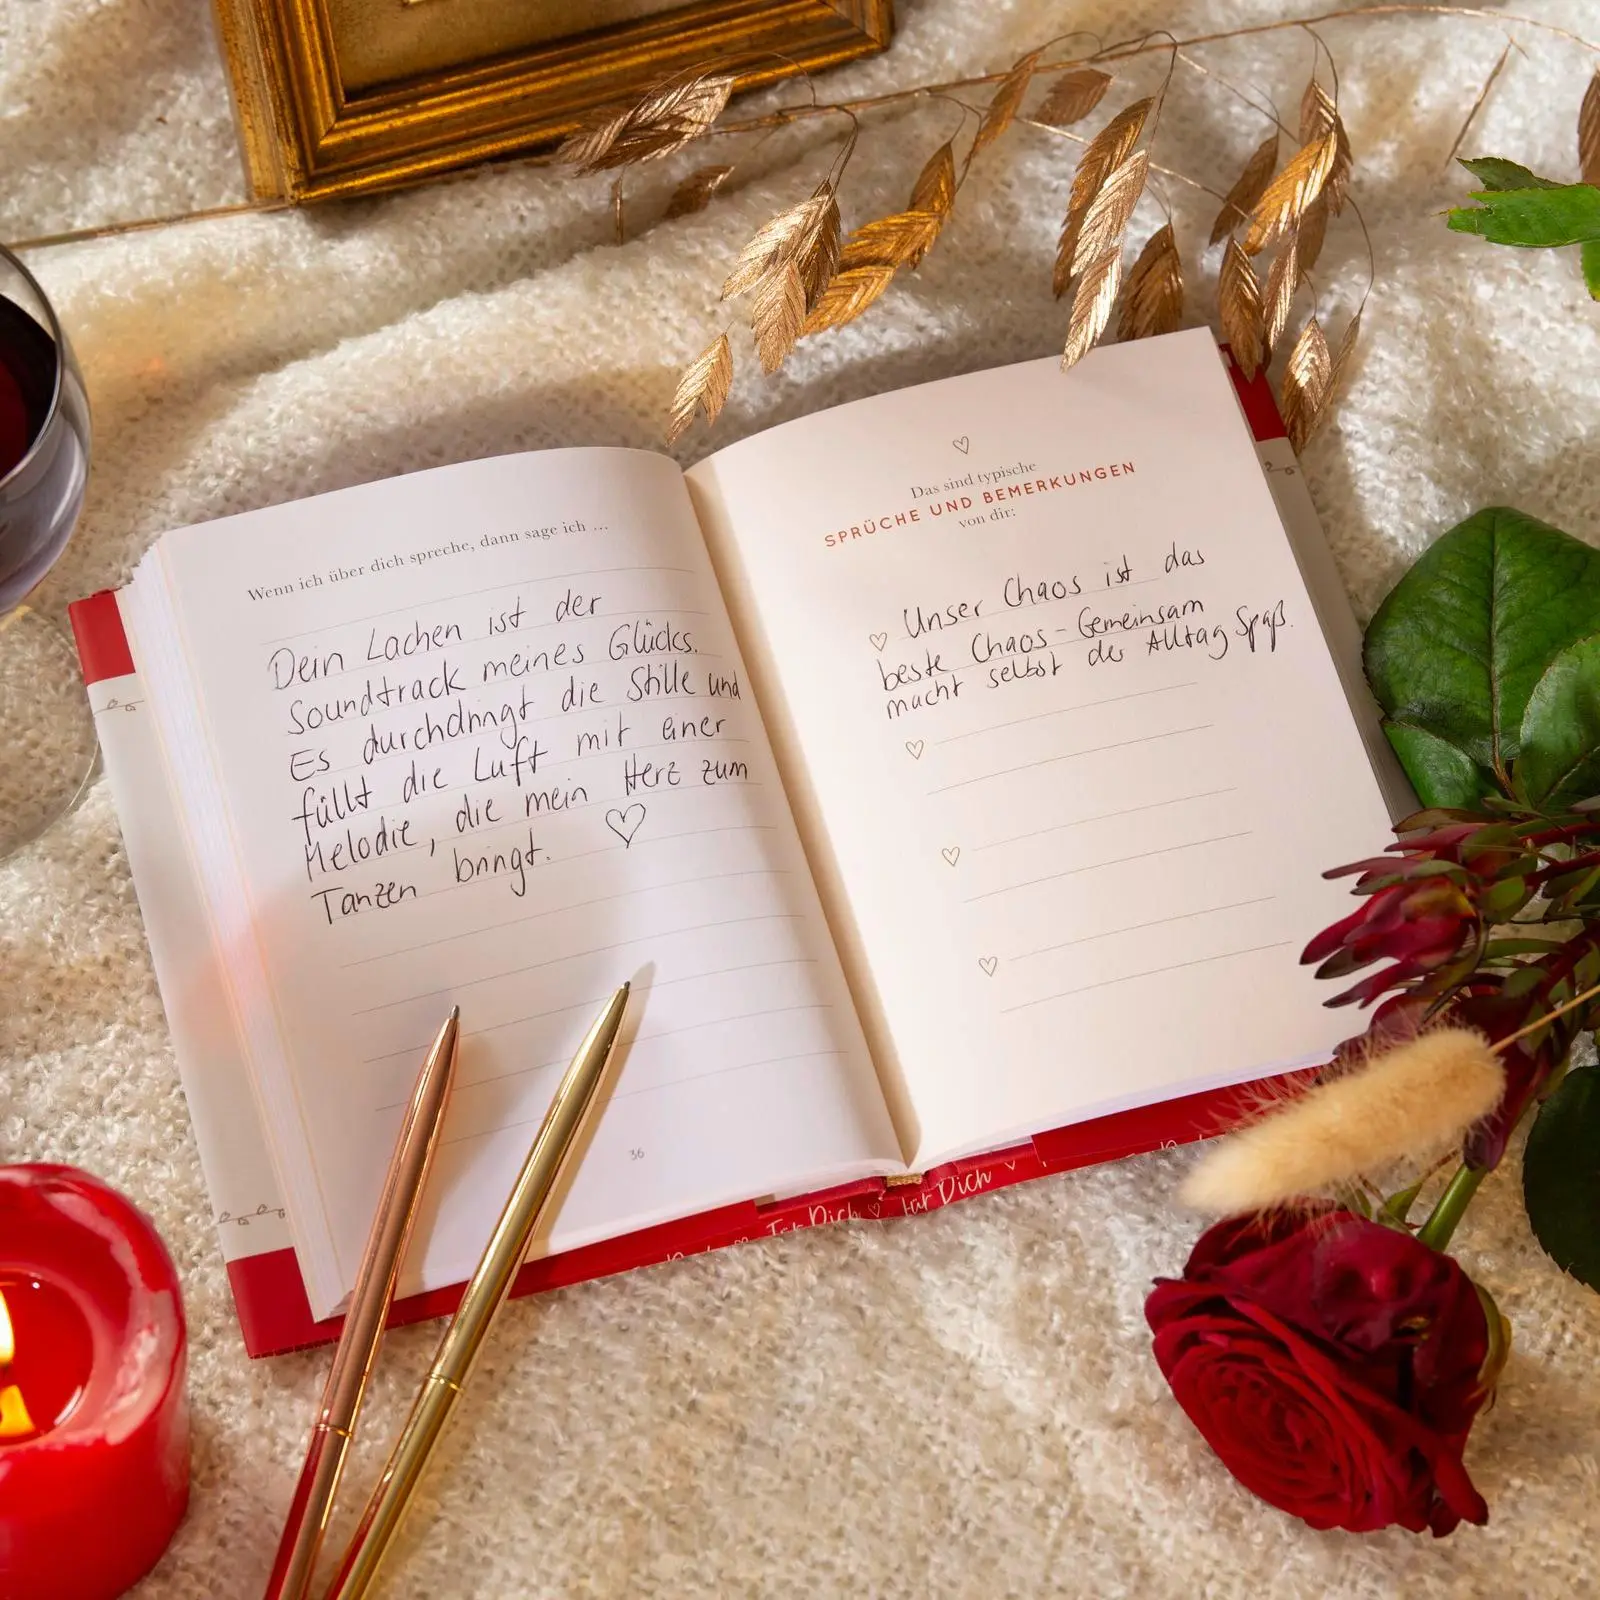 Wenn ich über dich spreche, dann sage ich ...
Dein Lachen ist der
Soundtrack meines Glücks.
Es durchdringt die Stille und
füllt die Luft mit einer
Melodie, die mein Herz zum
Tanzen bringt.
36
Das sind typische
SPRÜCHE UND BEMERKUNGEN
von dir:
Unser Chaos ist das
beste Chaos - Gemeinsam
macht selbst der Alltag Spaß.
Für Dich Für Dich